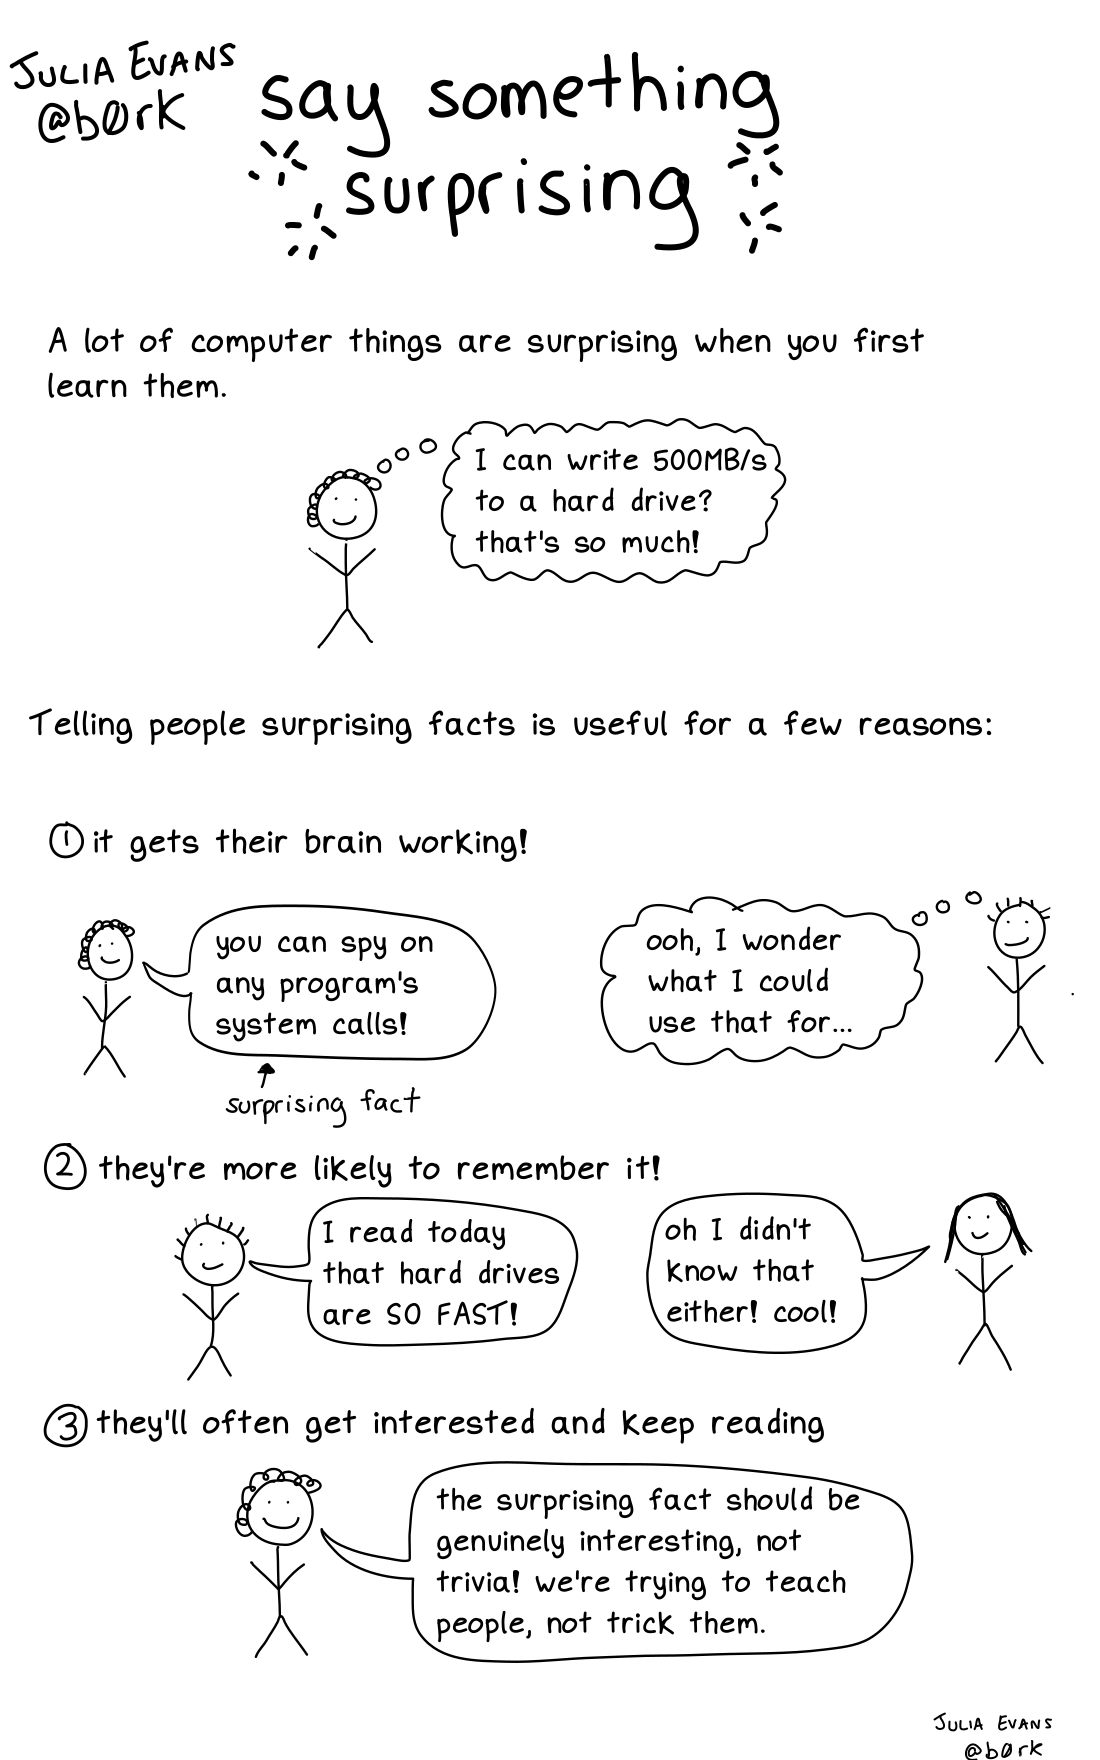 JULIA EVANS
@b0rk
say something
surprising
A lot of computer things are surprising when you first
learn them.
I can write 500MB/s
to a hard drive?
that's so much!
Telling people surprising facts is useful for a few reasons:
① it gets their brain working!
you can spy on
any program's
system calls!
surprising fact
ooh, I wonder
what I could
use that for...
② they're more likely to remember it!
I read today
that hard drives
are SO FAST!
oh I didn't
know that
either! cool!
③ they'll often get interested and keep reading
the surprising fact should be
genuinely interesting, not
trivia! we're trying to teach
people, not trick them.
JULIA EVANS
@b0rk